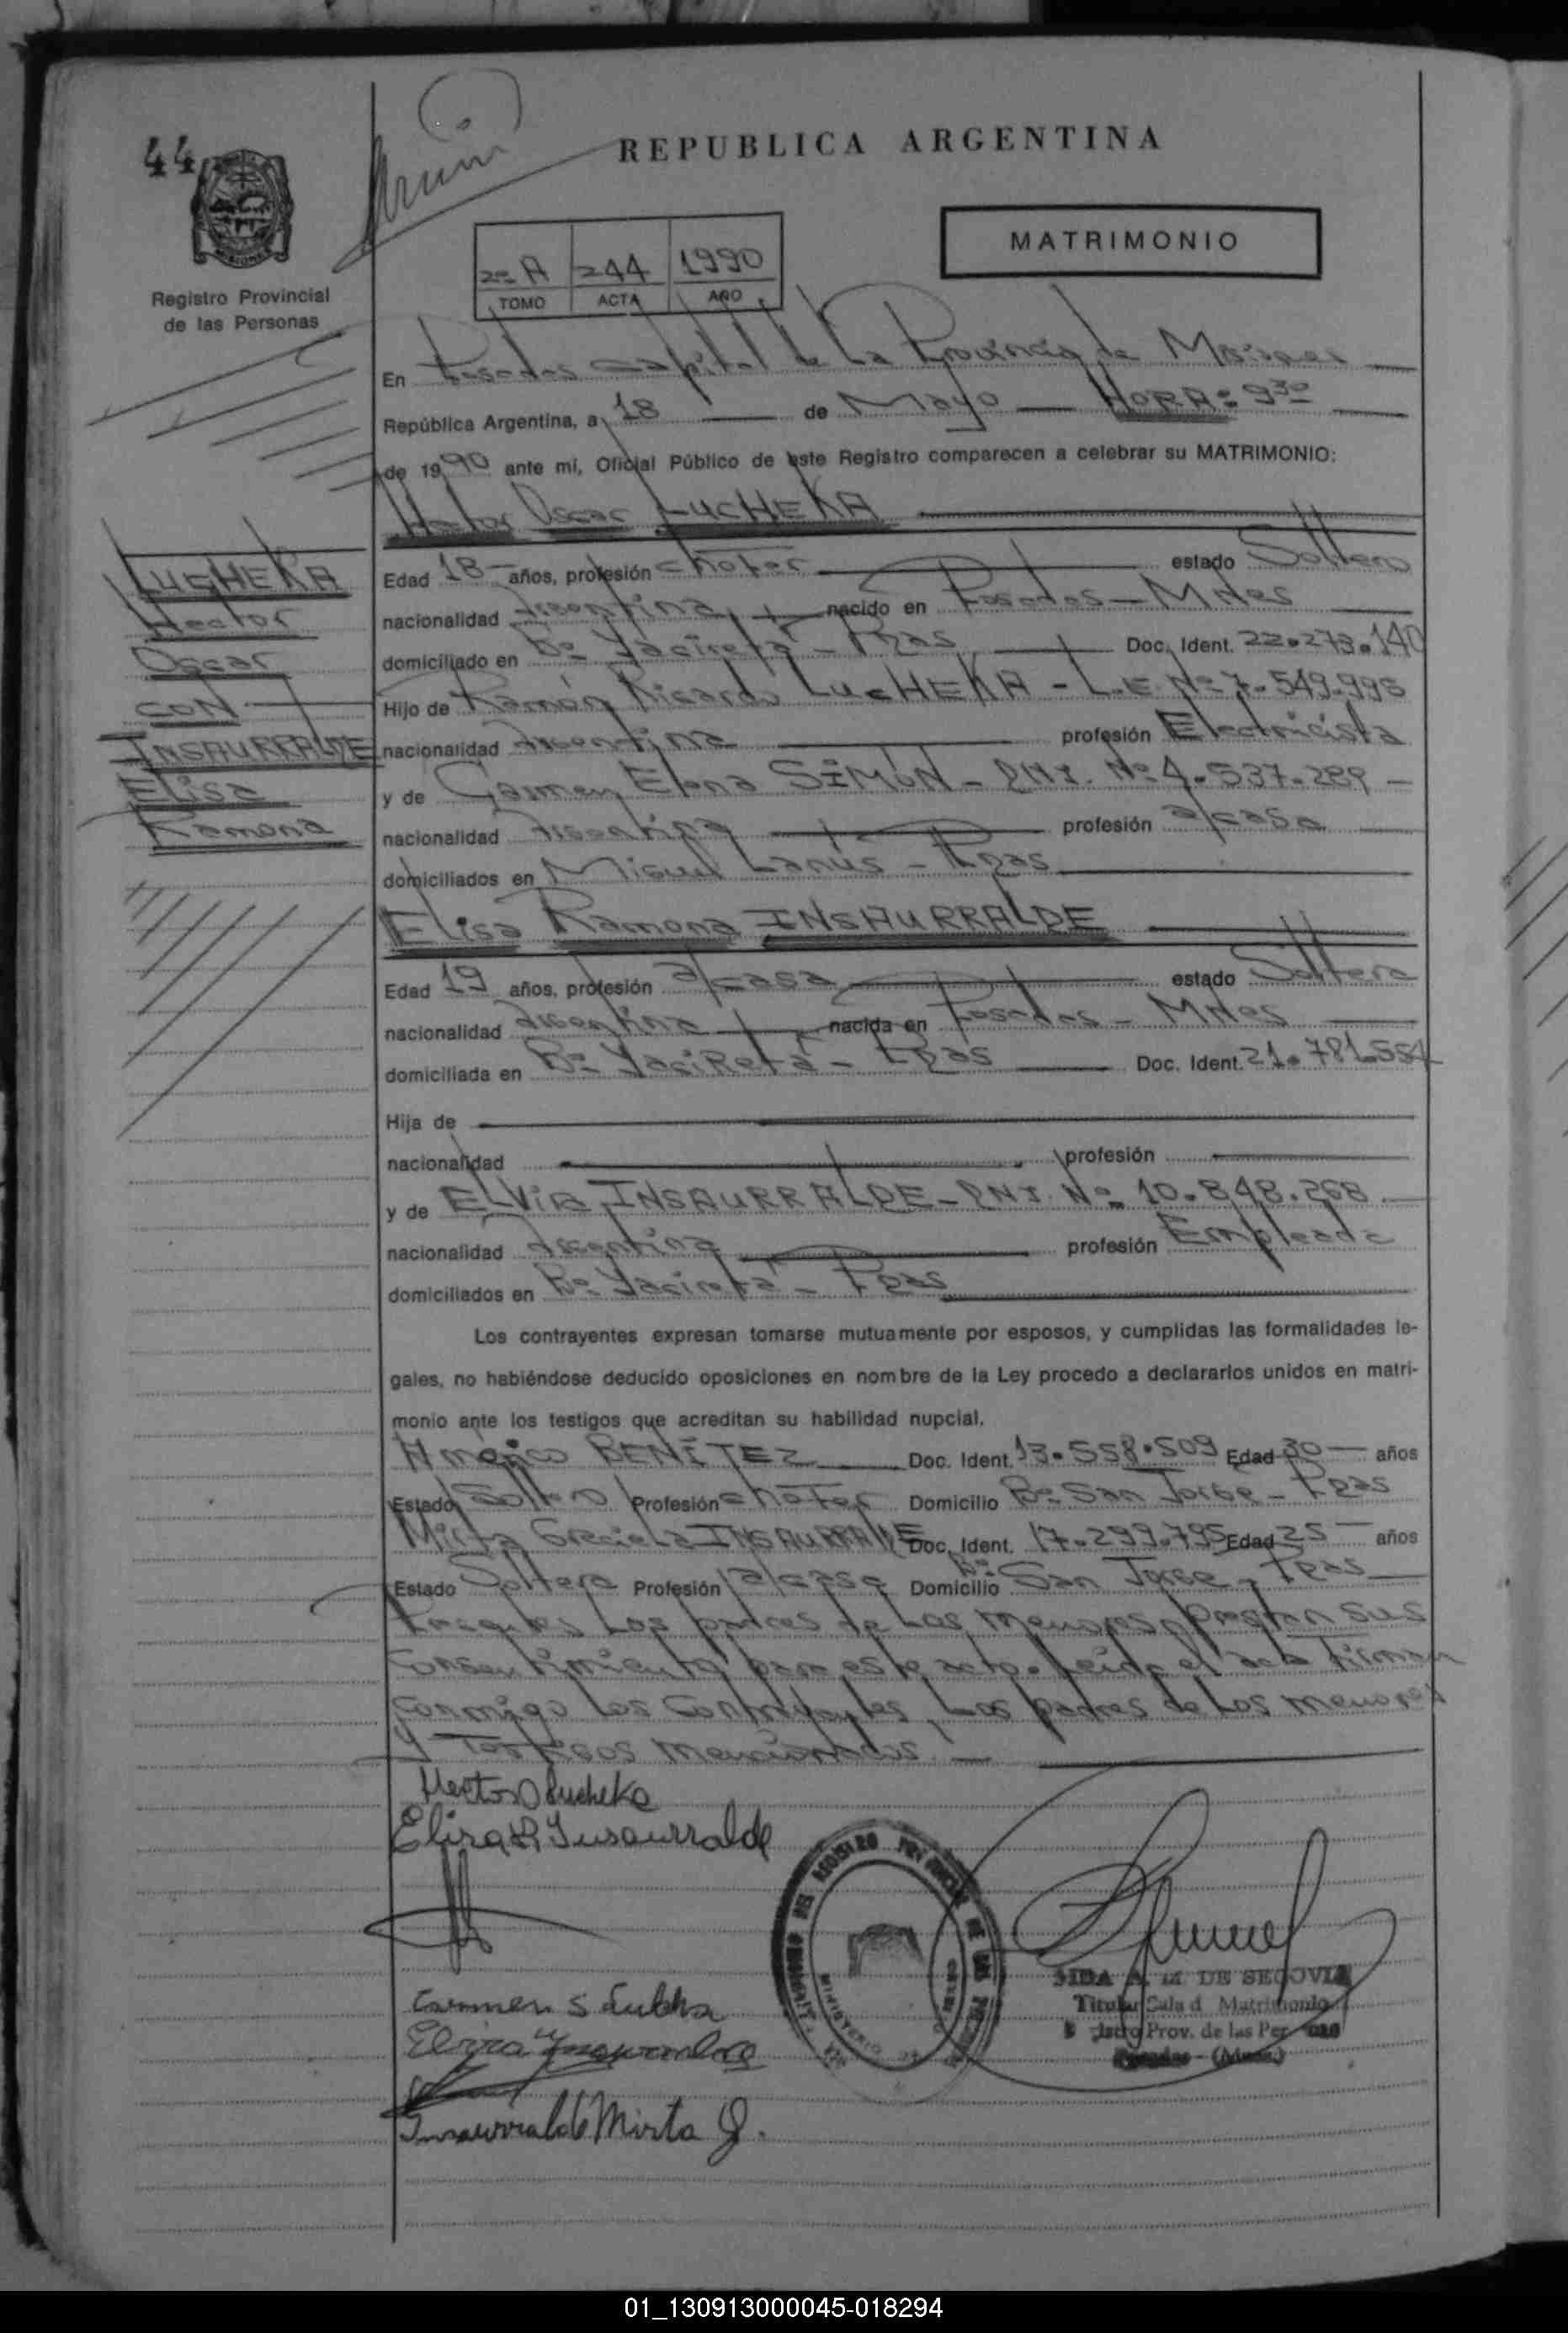 44
REPUBLICA ARGENTINA
MATRIMONIO
2º A 244 1990
TOMO ACTA AÑO
MISIONES
Registro Provincial
de las Personas
En Posadas Capital de La Provincia de Misiones
República Argentina, a 18 de Mayo HORA: 9 30
de 1990 ante mí, Oficial Público de este Registro comparecen a celebrar su MATRIMONIO:
Hector Oscar LUCHEKA
LUCHEKA
Hector
Oscar
CON
INSAURRALDE
Elisa
Ramona
Edad 18 años, profesión chofer estado Soltero
nacionalidad Argentina nacido en Posadas - Mnes
domiciliado en Bº Yaciretá - Pdas Doc. Ident. 22.273.140
Hijo de Ramón Ricardo LUCHEKA - L.E. Nº 7.549.995
nacionalidad Argentina profesión Electricista
y de Carmen Elena SIMÓN - DNI. Nº 4.537.289
nacionalidad Argentina profesión a/casa
domiciliados en Miguel Lanús - Pdas
Elisa Ramona INSAURRALDE
Edad 19 años, profesión a/casa estado Soltera
nacionalidad Argentina nacida en Posadas - Mnes
domiciliada en Bº Yaciretá - Pdas Doc. Ident. 21.781.554
Hija de
nacionalidad profesión
y de ELVIRA INSAURRALDE - DNI. Nº 10.848.268
nacionalidad Argentina profesión Empleada
domiciliados en Bº Yaciretá - Pdas
Los contrayentes expresan tomarse mutuamente por esposos, y cumplidas las formalidades le-
gales, no habiéndose deducido oposiciones en nombre de la Ley procedo a declararlos unidos en matri-
monio ante los testigos que acreditan su habilidad nupcial.
Américo BENÍTEZ Doc. Ident. 13.558.509 Edad 30 años
Estado Soltero Profesión chofer Domicilio Bº San Jorge - Pdas
Mirta Graciela INSAURRALDE Doc. Ident. 17.299.795 Edad 25 años
Estado Soltera Profesión a/casa Domicilio Bº San Jorge - Pdas
Presentes Los padres de Los menores, prestan sus
Consentimiento para este acto. Leída el acta Firman
conmigo Los Contrayentes, Los padres de Los menores
y Testigos mencionados.
Hector O Lucheka
Elisa R Insaurralde
Carmen S Lucheka
Elvira Insaurralde
Insaurralde Mirta G.
DE SEGOVIA
Titular Sala d Matrimonio
Prov. de las Per
Posadas - (Mnes.)
01_130913000045-018294